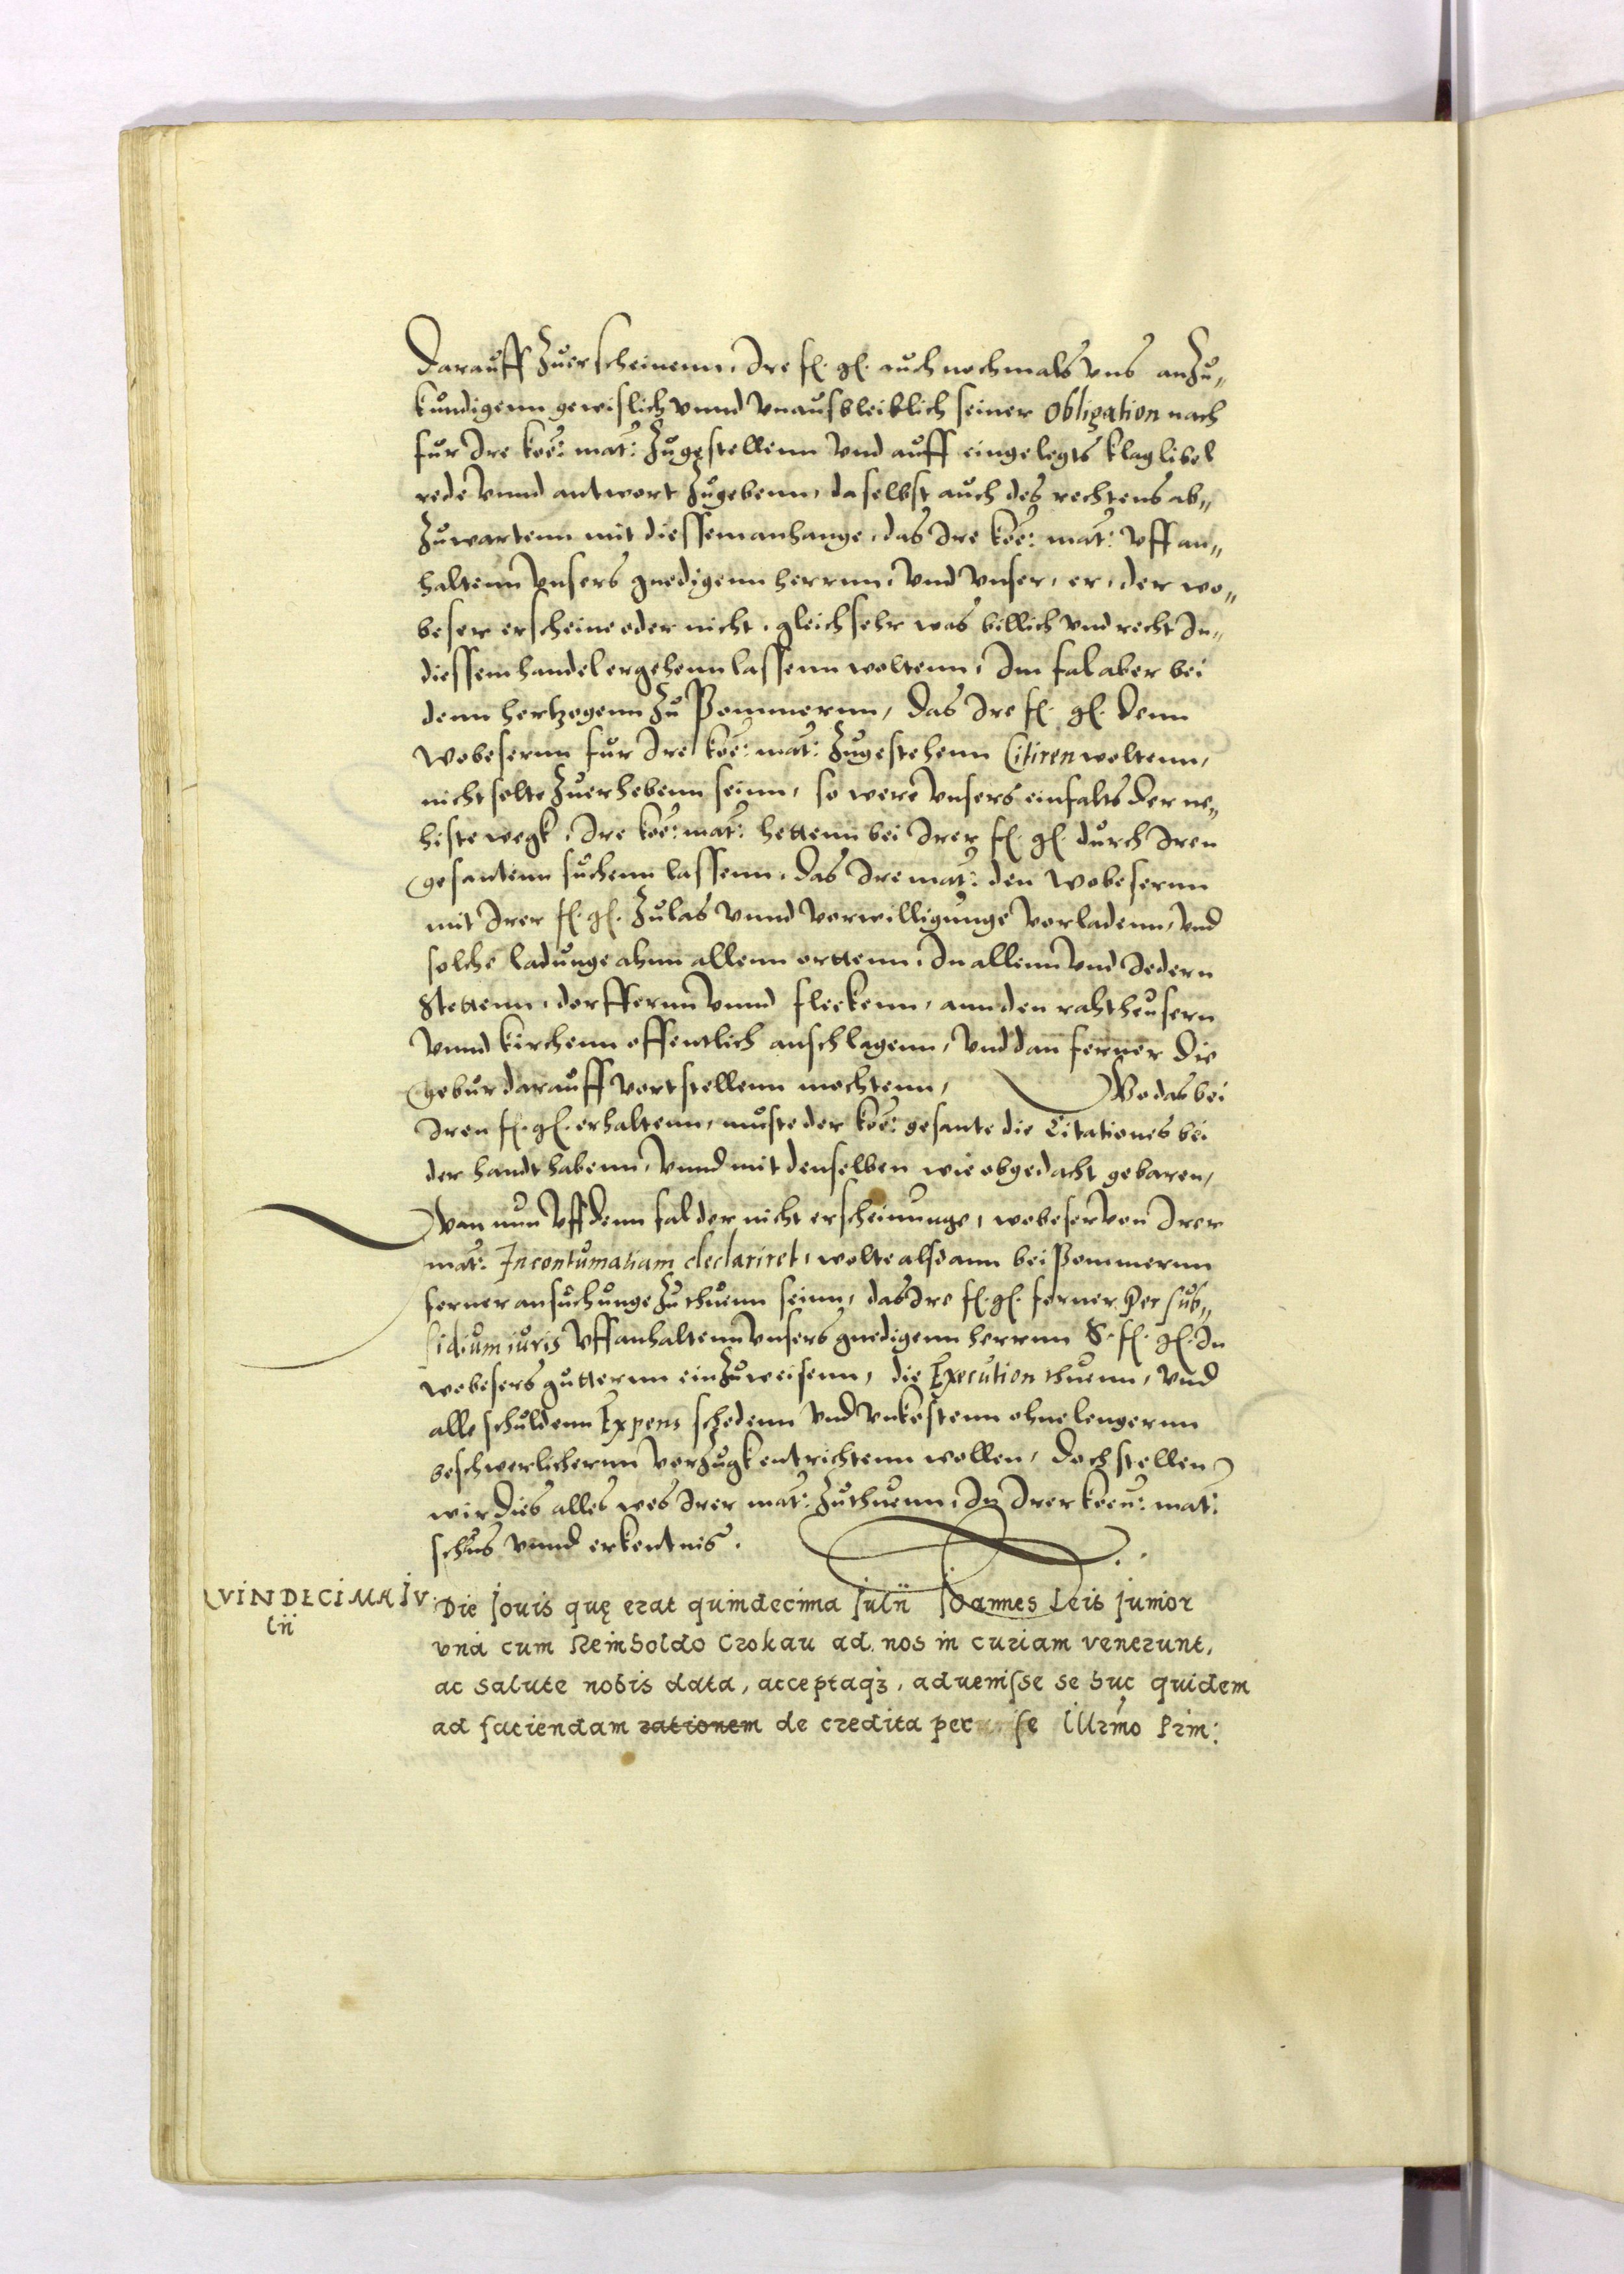 Darauff zuerscheinenn, Ire f. g. auch nochmals uns anzu„
kundigenn gewislich unnd unausbleiblich seiner Obligation nach
fur Ire koe: mat: zugestellenn und auff eingelegts klaglibel
rede unnd antwort zugebenn, daselbst auch des rechtens ab„
zuwartenn mit diessem anhange, das Ire koe: mat: uff an„
haltenn unsers gnedigenn herrnn, und unser, er, der wo„
beser erscheine oder nicht, gleich sehr was billich und recht In„
diessem handel ergehenn lassenn woltenn, Im fal aber bei
denn hertzogenn zu Pommernn, das Ire f. g. denn
wobesernn fur Ire koe: mat: zugestehenn Citiren woltenn,
nicht solte zuerhebenn seinn, so were unsers einfalts der ne„
histe wegk, Ire koe: mat: hettenn bei Irer f. g. durch Iren
gesantenn suchenn lassenn, das Ire mat: den wobesernn
mit Irer f. g. zulas unnd verwilligunge vorladenn, und
solche ladunge ahnn allenn orttenn, In allenn und Iedern
Stettenn, dorffernn unnd fleckenn, ann den rahtheusern
unnd kirchenn offentlich anschlagenn, und dan ferner die
gebur darauff vortstellenn mochtenn, Wo das bei
Iren f. g. erhaltenn, muste der koe: gesante die Citationes bei
der handt habenn, unnd mit denselben wie obgedacht gebaren,
Wan nun uff denn fal der nicht erscheinunge, wobeser von Irer
mat: In contumatiam declariret, wolte alsdann bei Pommernn
ferner ansuchunge zuthuenn seinn, das Ire f. g. ferner Per sub„
sidium iuris uff anhaltenn unsers gnedigenn herrnn S. f. g. In
wobesers gutternn einzuweisenn, die Execution thuenn, und
alle schuldenn Expens schedenn und unkostenn ohne lengernn
beschwerlichernn vorzugk entrichtenn wollen, Doch stellen
wir dies alles wes Irer mat: zuthuenn, In Irer koen: mat:
schus unnd erkentnis.
QVINDECIMA IV:
lii
Die Jouis quę erat quindecima Julii Joannes Leis junior
vna cum Reinholdo Crokau ad nos in curiam venerunt,
ac salute nobis data, acceptaqꝫ, aduenisse se huc quidem
ad faciendam rationem de credita pec se Illrmo Prin: